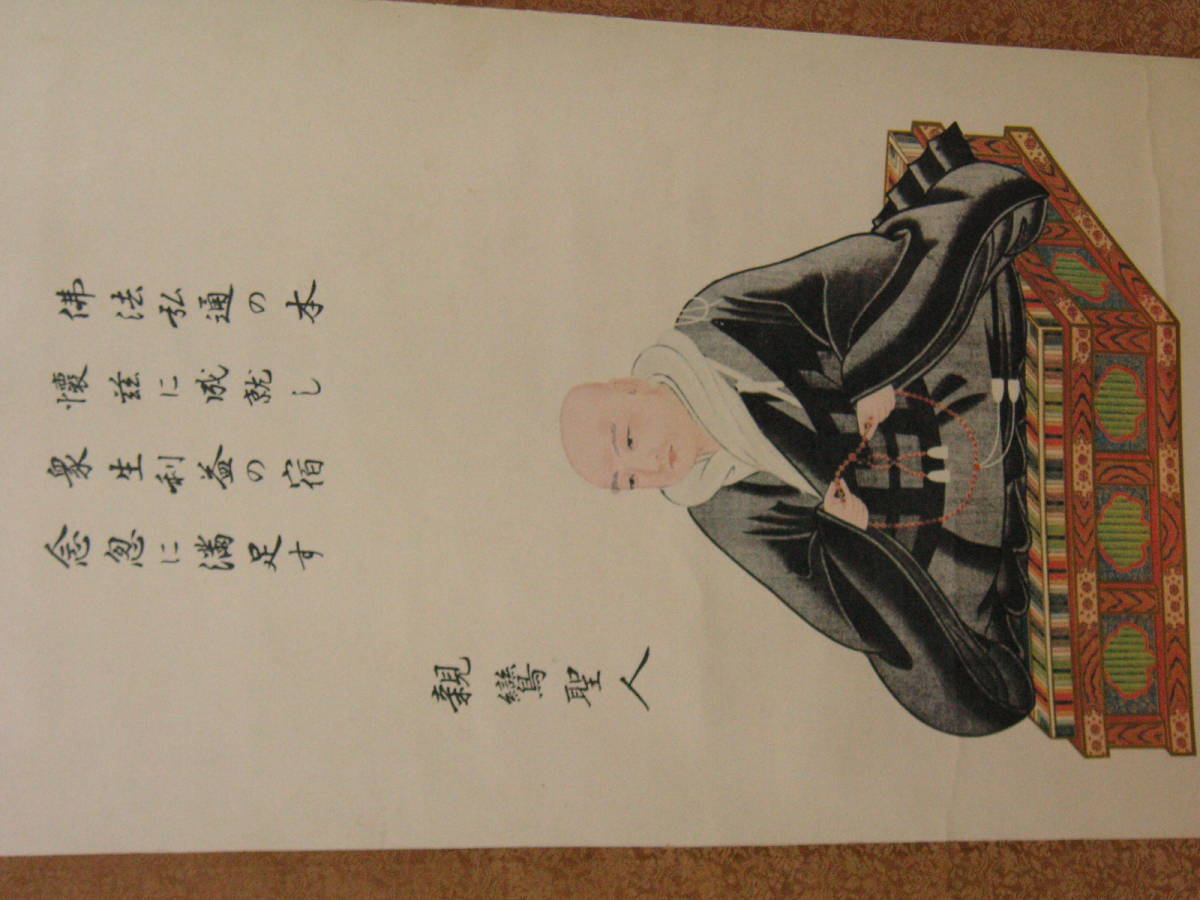 佛法弘通の本
懐茲に成就し
衆生利益の宿
念忽に満足す
親鸞聖人